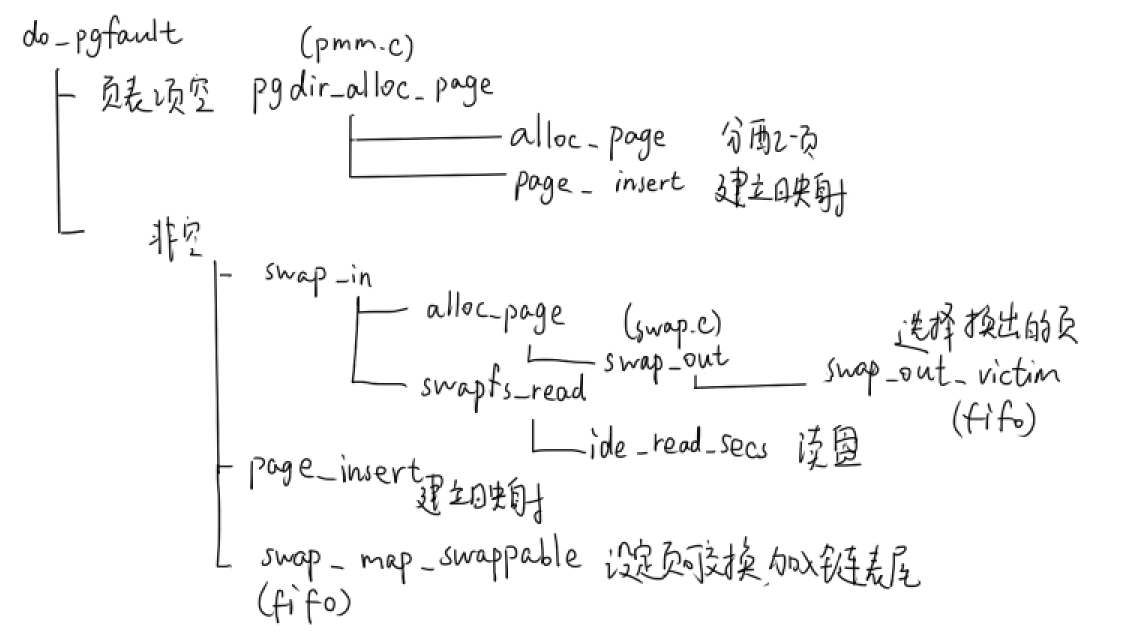 do_pgfault
(pmm.c)
页表项空 pgdir_alloc_page
alloc_page 分配一页
page_insert 建立映射
非空
swap_in
alloc_page (swap.c) 选择换出的页
swap_out swap_out_victim
swapfs_read (fifo)
ide_read_secs 读盘
page_insert 建立映射
swap_map_swappable 设定页可交换,加入链表尾
(fifo)